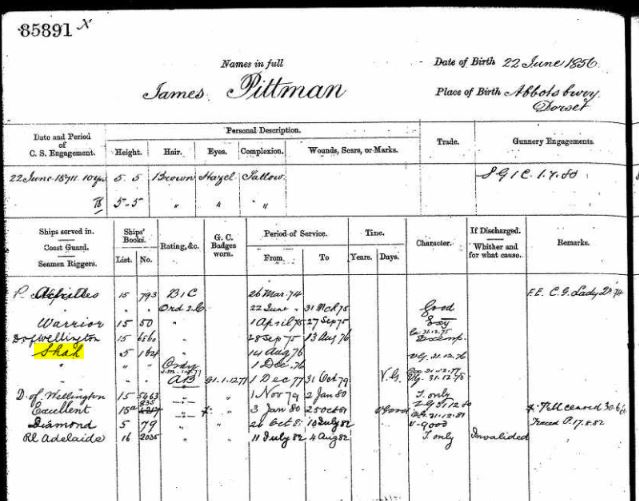 85891 X
Names in full
James Pittman
Date of Birth 22 June 1856
Place of Birth Abbotsbury
Dorset
Date and Period of C. S. Engagement.
Personal Description.
Height. Hair. Eyes. Complexion. Wounds, Scars, or Marks.
Trade.
Gunnery Engagements.
22 June 1874. 10 yrs 5.5 Brown Hazel Sallow S G 1 C 1.7.80
5.5 " " "
Ships served in.
Coast Guard.
Seamen Riggers.
Ships' Books.
List. No.
Rating, &c.
G. C. Badges worn.
Period of Service.
From To
Time.
Years. Days.
Character.
If Discharged. Whither and for what cause.
Remarks.
P. Achilles 15 793 B 1 C 26 Mar. 74
" " " Ord 2.C 22 June " 31 Mch 75 Good
Warrior 15 50 " 1 April 75 27 Sep 75
D of Wellington 15 " 28 Sep 75 13 Aug 76
Shah 5 " 14 Aug 76 31.12.76
" " " 1 Dec 76
" " " AB G1.1.12.77 1 Dec 77 31 Oct 79 V.G.
D. of Wellington 15 " 1 Nov 79 2 Jan 80 T. only
Excellent 15a 3 Jan 80 25 Oct 81 31.12.81
Diamond 5 79 " 26 Oct 81 10 July 82 V. Good Traced P. 17.8.82
Rl Adelaide 16 " 11 July 82 4 Aug 82 T. only Invalided